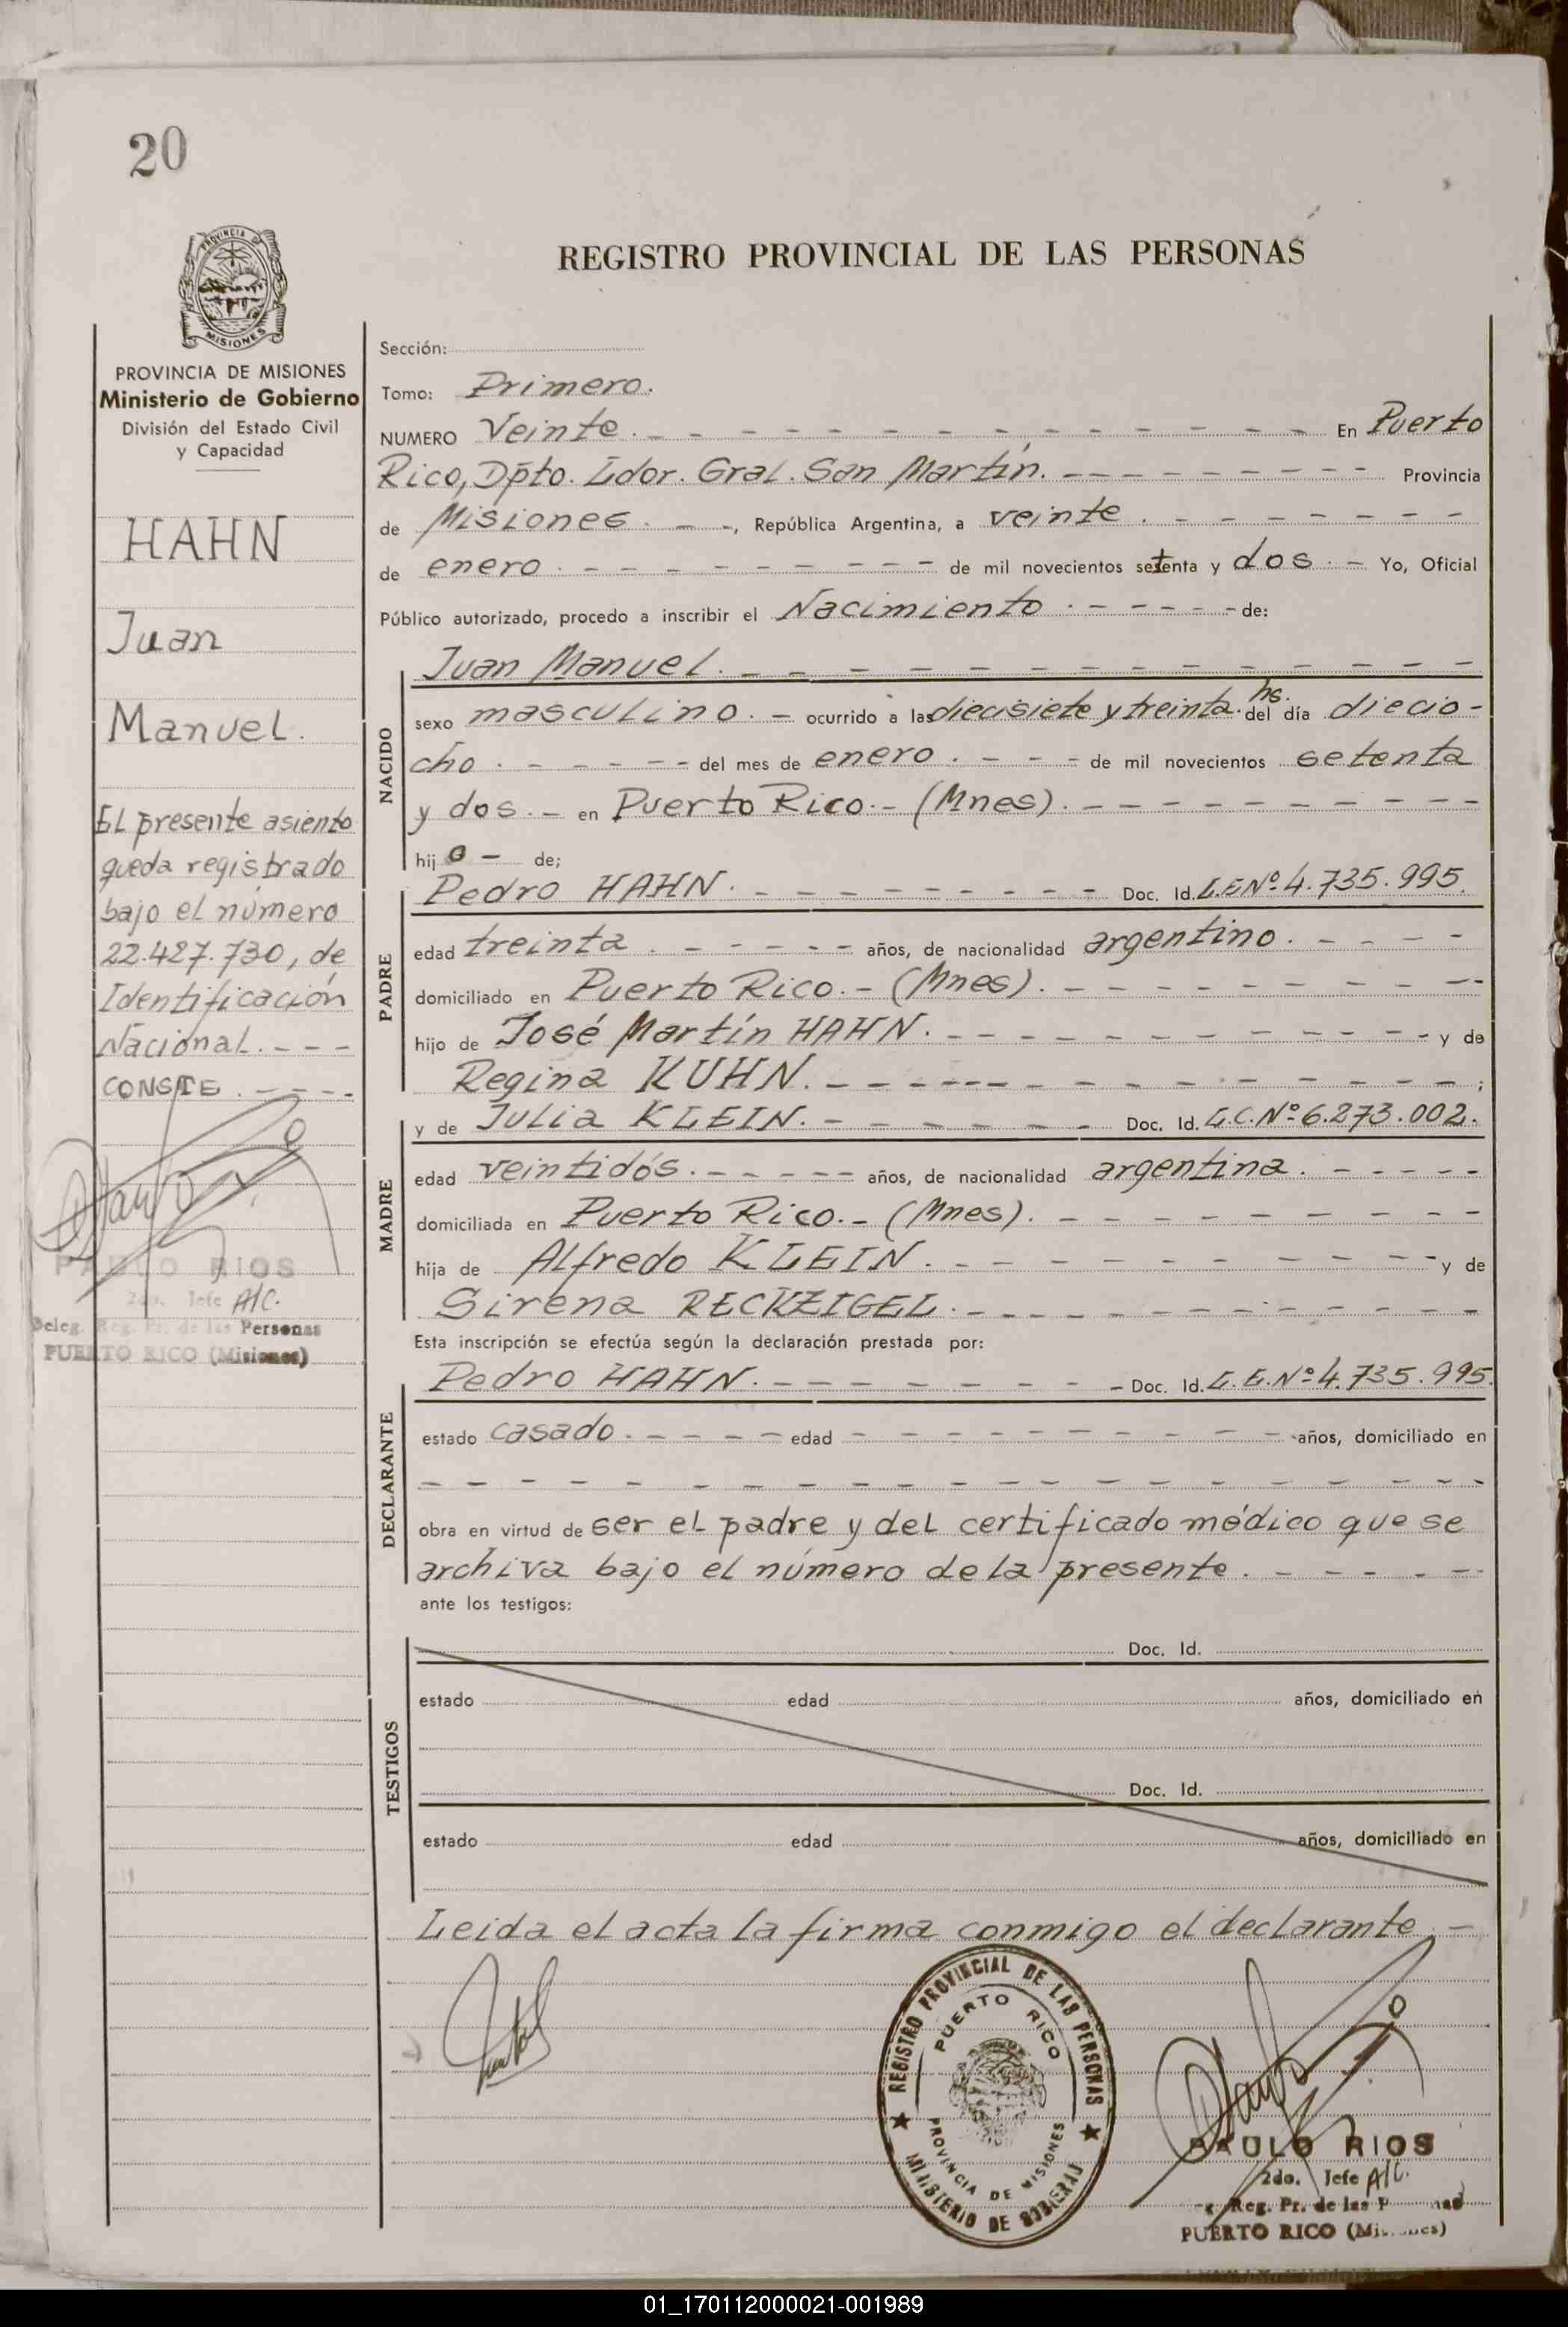 20
REGISTRO PROVINCIAL DE LAS PERSONAS
PROVINCIA DE MISIONES
Ministerio de Gobierno
División del Estado Civil
y Capacidad
HAHN
Juan
Manuel.
El presente asiento
queda registrado
bajo el número
22.427.730, de
Identificación
Nacional. - - -
CONSTE. - - - -
PAULO RIOS
2do. Jefe A/C.
Deleg. Reg. Pr. de las Personas
PUERTO RICO (Misiones)
Sección:
Tomo: Primero.
NUMERO Veinte. - - - En Puerto
Rico, Dpto. Ldor. Gral. San Martín. - - - Provincia
de Misiones. - -, República Argentina, a veinte. - - -
de enero. - - - de mil novecientos setenta y dos. - Yo, Oficial
Público autorizado, procedo a inscribir el Nacimiento. - - - de:
NACIDO
Juan Manuel. - - -
sexo masculino. - ocurrido a las diecisiete y treinta. hs. del día diecio-
cho. - - - del mes de enero. - - - de mil novecientos setenta
y dos. - en Puerto Rico.- (Mnes). - - -
hijo - de;
PADRE
Pedro HAHN. - - - Doc. Id. L.E.Nº 4.735.995.
edad treinta. - - - años, de nacionalidad argentino. - - -
domiciliado en Puerto Rico.- (Mnes). - - -
hijo de José Martín HAHN. - - - y de
Regina KUHN. - - - ;
MADRE
y de Julia KLEIN. - - - Doc. Id. L.C.Nº 6.273.002.
edad veintidós. - - - años, de nacionalidad argentina. - - -
domiciliada en Puerto Rico.- (Mnes). - - -
hija de Alfredo KLEIN. - - - y de
Sirena RECKZIGEL. - - -
Esta inscripción se efectúa según la declaración prestada por:
DECLARANTE
Pedro HAHN. - - - Doc. Id. L.E.Nº 4.735.995.
estado casado. - - - edad - - - años, domiciliado en
- - -
obra en virtud de ser el padre y del certificado médico que se
archiva bajo el número de la presente. - - -
ante los testigos:
TESTIGOS
Doc. Id.
estado edad años, domiciliado en
Doc. Id.
estado edad años, domiciliado en
Leida el acta la firma conmigo el declarante. -
REGISTRO PROVINCIAL DE LAS PERSONAS
PUERTO RICO
PROVINCIA DE MISIONES
MINISTERIO DE GOBIERNO
PAULO RIOS
2do. Jefe A/C.
Reg. Pr. de las
PUERTO RICO (Misiones)
01_170112000021-001989